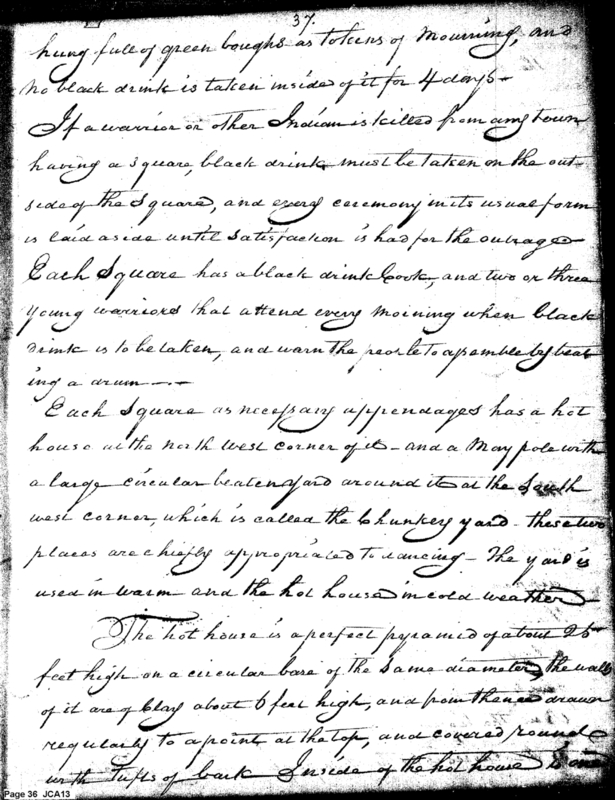 37.
hung full of green boughs as tokens of mourning, and
no black drink is taken inside of it for 4 days –
If a warrior or other Indian is killed from any town
having a square, black drink must be taken on the out
side of the square, and every ceremony in its usual form
is laid aside until satisfaction is had for the outrage –
Each Square has a black drink Cook, and two or three
young warriors that attend every morning when black
drink is to be taken, and warn the people to assemble by beat
ing a drum –––
Each Square as necessary appendages has a hot
house at the north west corner of it – and a May pole with
a large circular beaten yard around it at the South
west corner, which is called the Chunkey yard – these two
places are chiefly appropriated to dancing – The yard is
used in warm and the hot house in cold weather –
The hot house is a perfect pyramid of about 25
feet high on a circular base of the same diameter, the walls
of it are of Clay about 6 feet high, and from thence drawn
regularly to a point at the top, and covered round
with Tufts of bark Inside of the hot house is one
Page 36 JCA13